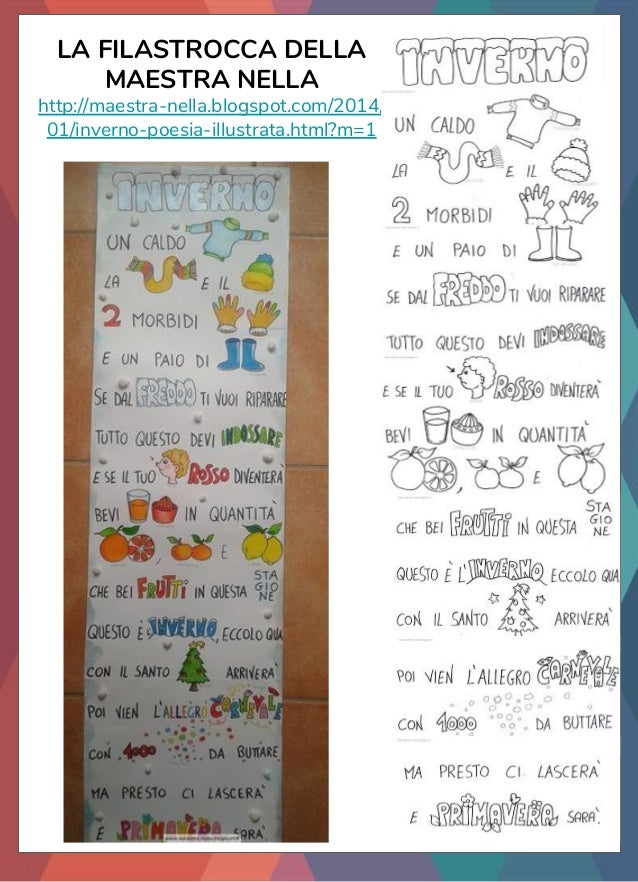 LA FILASTROCCA DELLA
MAESTRA NELLA
http://maestra-nella.blogspot.com/2014/
01/inverno-poesia-illustrata.html?m=1
INVERNO
UN CALDO
LA E IL
2 MORBIDI
E UN PAIO DI
SE DAL FREDDO TI VUOI RIPARARE
TUTTO QUESTO DEVI INDOSSARE
E SE IL TUO ROSSO DIVENTERÀ
BEVI IN QUANTITÀ
, E
CHE BEI FRUTTI IN QUESTA STAGIONE
QUESTO È L'INVERNO, ECCOLO QUA
CON IL SANTO ARRIVERÀ
POI VIEN L'ALLEGRO CARNEVALE
CON 1000 DA BUTTARE
MA PRESTO CI LASCERÀ
E PRIMAVERA SARÀ.
INVERNO
UN CALDO
LA E IL
2 MORBIDI
E UN PAIO DI
SE DAL FREDDO TI VUOI RIPARARE
TUTTO QUESTO DEVI INDOSSARE
E SE IL TUO ROSSO DIVENTERÀ
BEVI IN QUANTITÀ
, E
CHE BEI FRUTTI IN QUESTA STAGIONE
QUESTO È L'INVERNO, ECCOLO QUA
CON IL SANTO ARRIVERÀ
POI VIEN L'ALLEGRO CARNEVALE
CON 1000 DA BUTTARE
MA PRESTO CI LASCERÀ
E PRIMAVERA SARÀ.